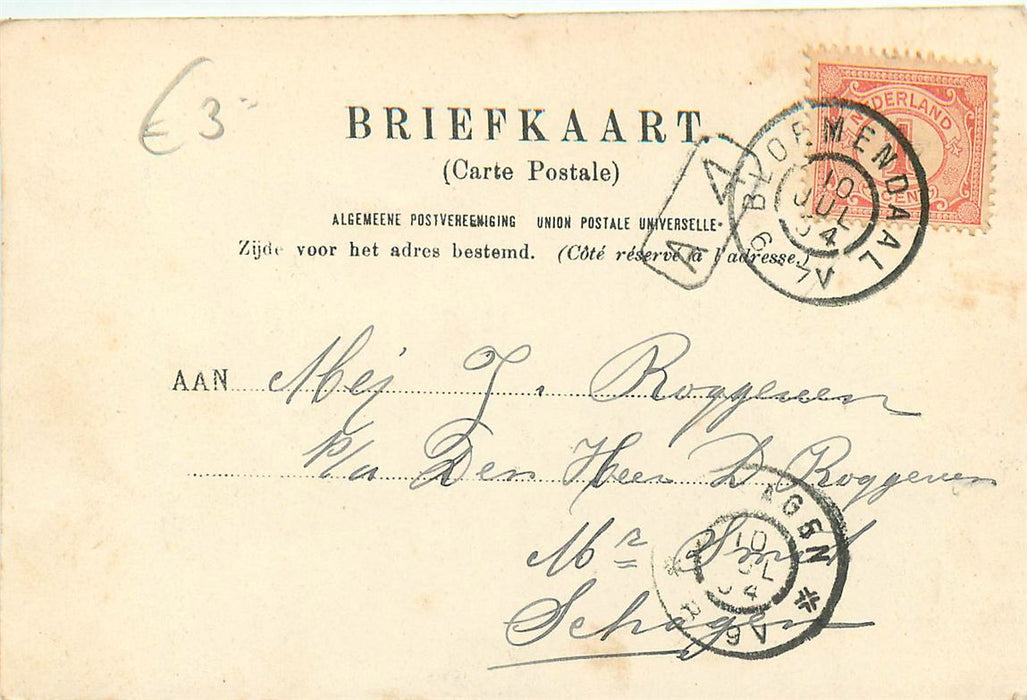 € 3-
BRIEFKAART
(Carte Postale)
ALGEMEENE POSTVEREENIGING UNION POSTALE UNIVERSELLE
Zijde voor het adres bestemd. (Côté réservé à l'adresse.)
NEDERLAND
1
CENT
BLOEMENDAAL
10
JUL
04
6-7V
A A
AAN Mej J. Roggeveen
p/a Den Heer D Roggeveen
Mr Smid
Schagen
AGEN
10
JUL
04
9V